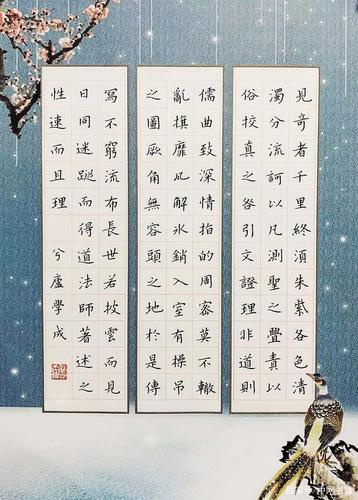 見奇者千里終須朱紫各色清
濁分流訶以凡測聖之舋責以
俗校真之咎引文證理非道則
儒曲致深情指的周密莫不轍
亂旗靡瓦解冰銷入室有操吊
之圖厥角無容頭之地於是傳
寫不窮流布長世若披雲而見
日同迷蹤而得道法師著述之
性速而且理 兮虛學成